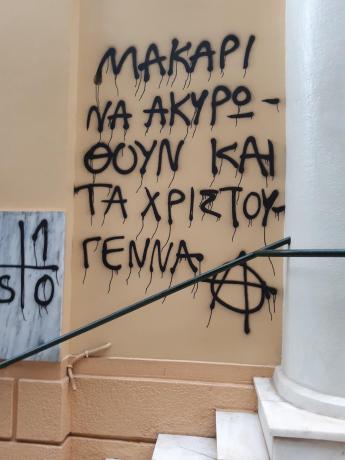 ΜΑΚΑΡΙ
ΝΑ ΑΚΥΡΩ-
ΘΟΥΝ ΚΑΙ
ΤΑ ΧΡΙΣΤΟΥ-
ΓΕΝΝΑ Ⓐ
1
S O